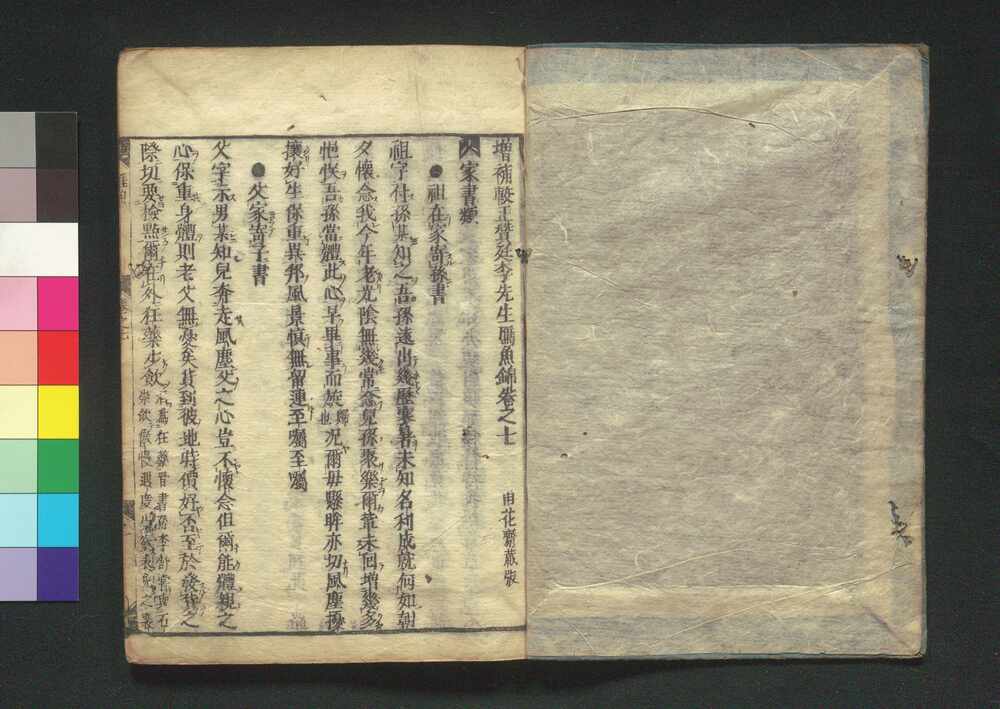 増補較正贊廷李先生鴈魚錦卷之七
由花齋藏板
父家書類
●祖在家寄孫書
祖字付孫某知之吾孫遠出幾歷寒暑未知名利成就何如朝
夕懷念我今年老光陰無幾常念兒孫聚樂爾輩未回增幾多
悒怏吾孫當體此心早畢事而旋歸也况爾毋懸眸亦切風塵擾
攘好生保重異邦風景慎無留連至囑至囑
●父家寄子書
父字示男某知兒奔走風塵父之心豈不懷念但爾能體親之
心保重身體則老父無憂矣貨到彼地時價好否至於發貨之
際切要撿點爾在外狂藥少飲